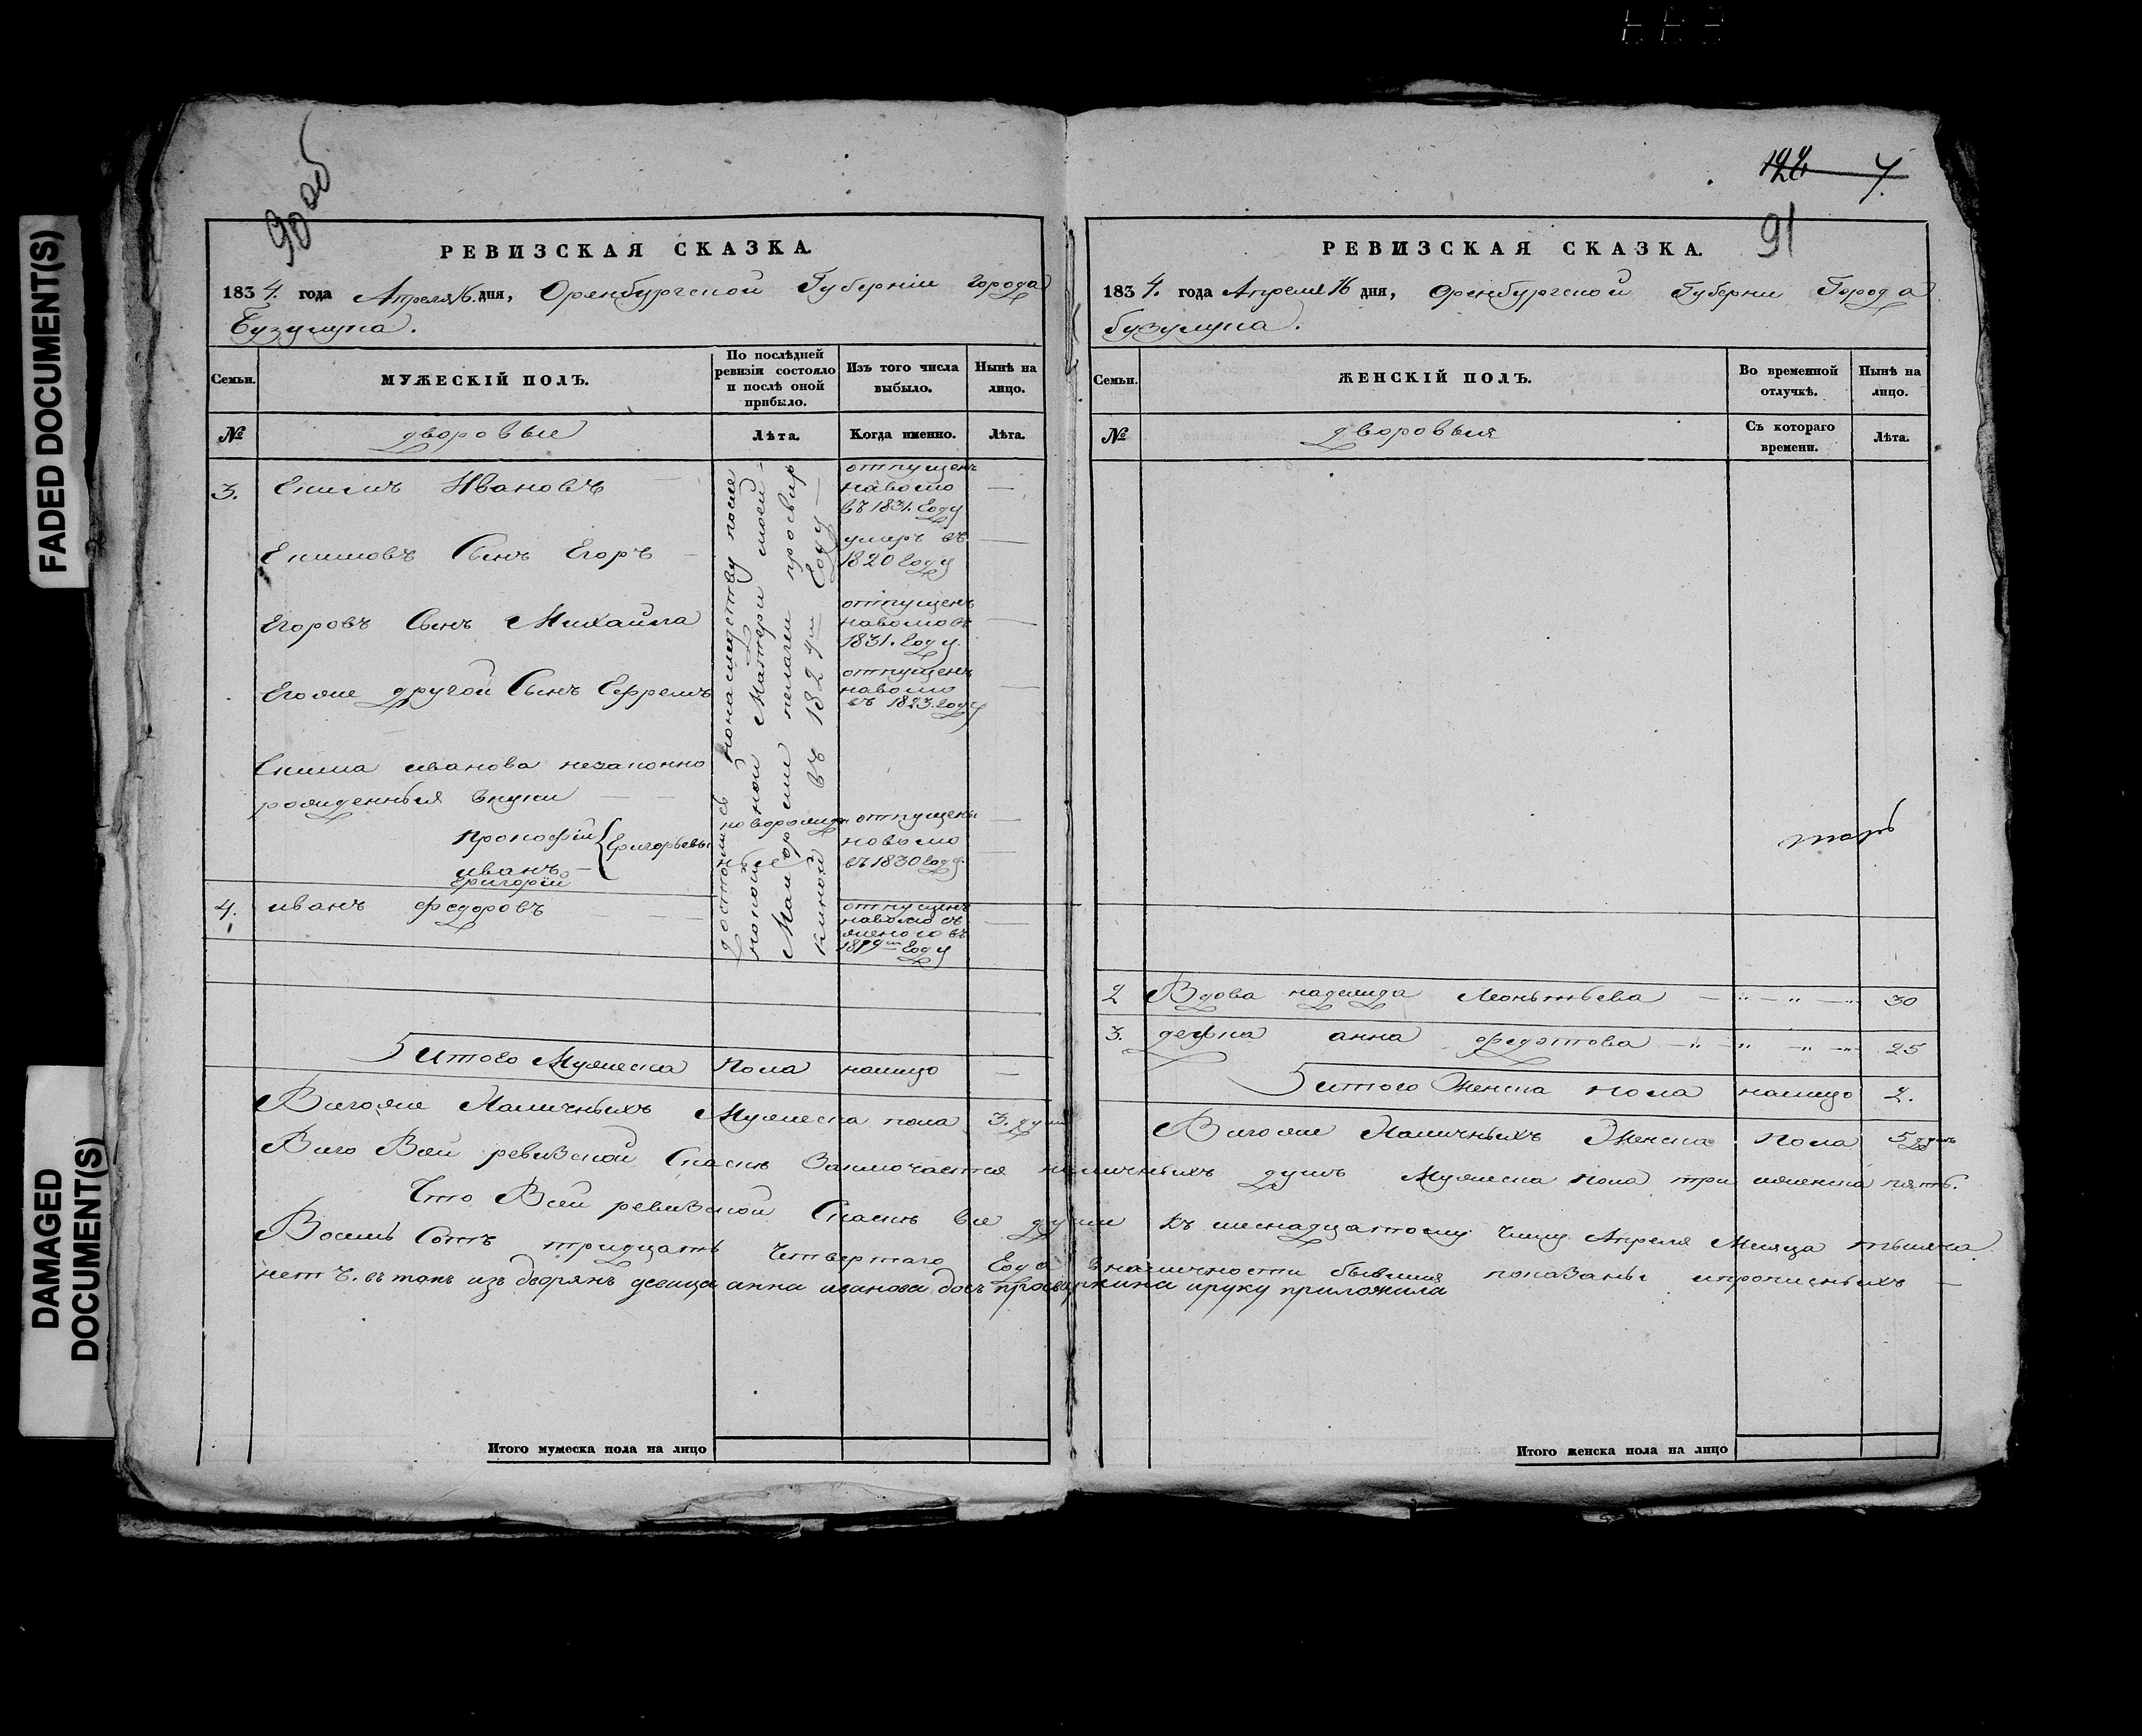 FADED DOCUMENT(S)
DAMAGED
DOCUMENT(S)
90 об
РЕВИЗСКАЯ СКАЗКА.
1834. года Апреля 16. дня, Оренбургской Губерніи города
Бузулука.
Семьи.
МУЖЕСКІЙ ПОЛЪ.
По послѣдней
ревизіи состояло
и послѣ оной
прибыло.
Изъ того числа
выбыло.
Нынѣ на
лицо.
№
дворовые
Лѣта.
Когда именно.
Лѣта.
3. Екимъ Ивановъ
отпущенъ
наволю
въ 1831. Году
—
Екимовъ Сынъ Егоръ —
умеръ въ
1820 Году
—
Егоровъ Сынъ Михайла
отпущенъ
наволювъ
1831. Году.
—
Егоже другой Сынъ Ефремъ
отпущенъ
наволю
въ 1823. Году
—
Екима иванова незаконно
рожденныя внуки — —
Прокофiй
иванъ —
Григорiй
Григорьевы
новорожден
ные
отпущены
наволю
въ 1830 Году.
4. иванъ федоровъ — — —
отпущенъ
наволю съ
женою въ
Году
—
достались понаследству после
покойной Матери моей —
Маиорши пелагеи просвир
киной въ 1824м Году —
Итого Мужеска Пола налицо —
Всегоже Наличныхъ Мужеска пола 3. душ
122 7.
91
РЕВИЗСКАЯ СКАЗКА.
1834. года Апреля 16 дня, Оренбургской Губерни Города
бузулука.
Семьи.
ЖЕНСКІЙ ПОЛЪ.
Во временной
отлучкѣ.
Нынѣ на
лицо.
№
дворовыя
Съ котораго
времени.
Лѣта.
2 Вдова надежда Леонтьева — 30
3. девка анна федотова — 25
Итого Женска пола налицо 2.
Всегоже Наличныхъ Женска Пола 5 душъ
Всего Всей ревизской Сказке Заключается наличныхъ душъ Мужеска пола три иженска пять.
Что Всей ревизской Сказке все души Къ шеснадцатому Числу Апреля Месяца тысяча
Восемь Сотъ тридцать Четвертаго Года вналичности бывшия показаны ипрописныхъ —
нетъ. въ томъ изъ дворянъ девица анна иванова дочь просвиркина ируку приложила
Итого мужеска пола на лицо
Итого женска пола на лицо